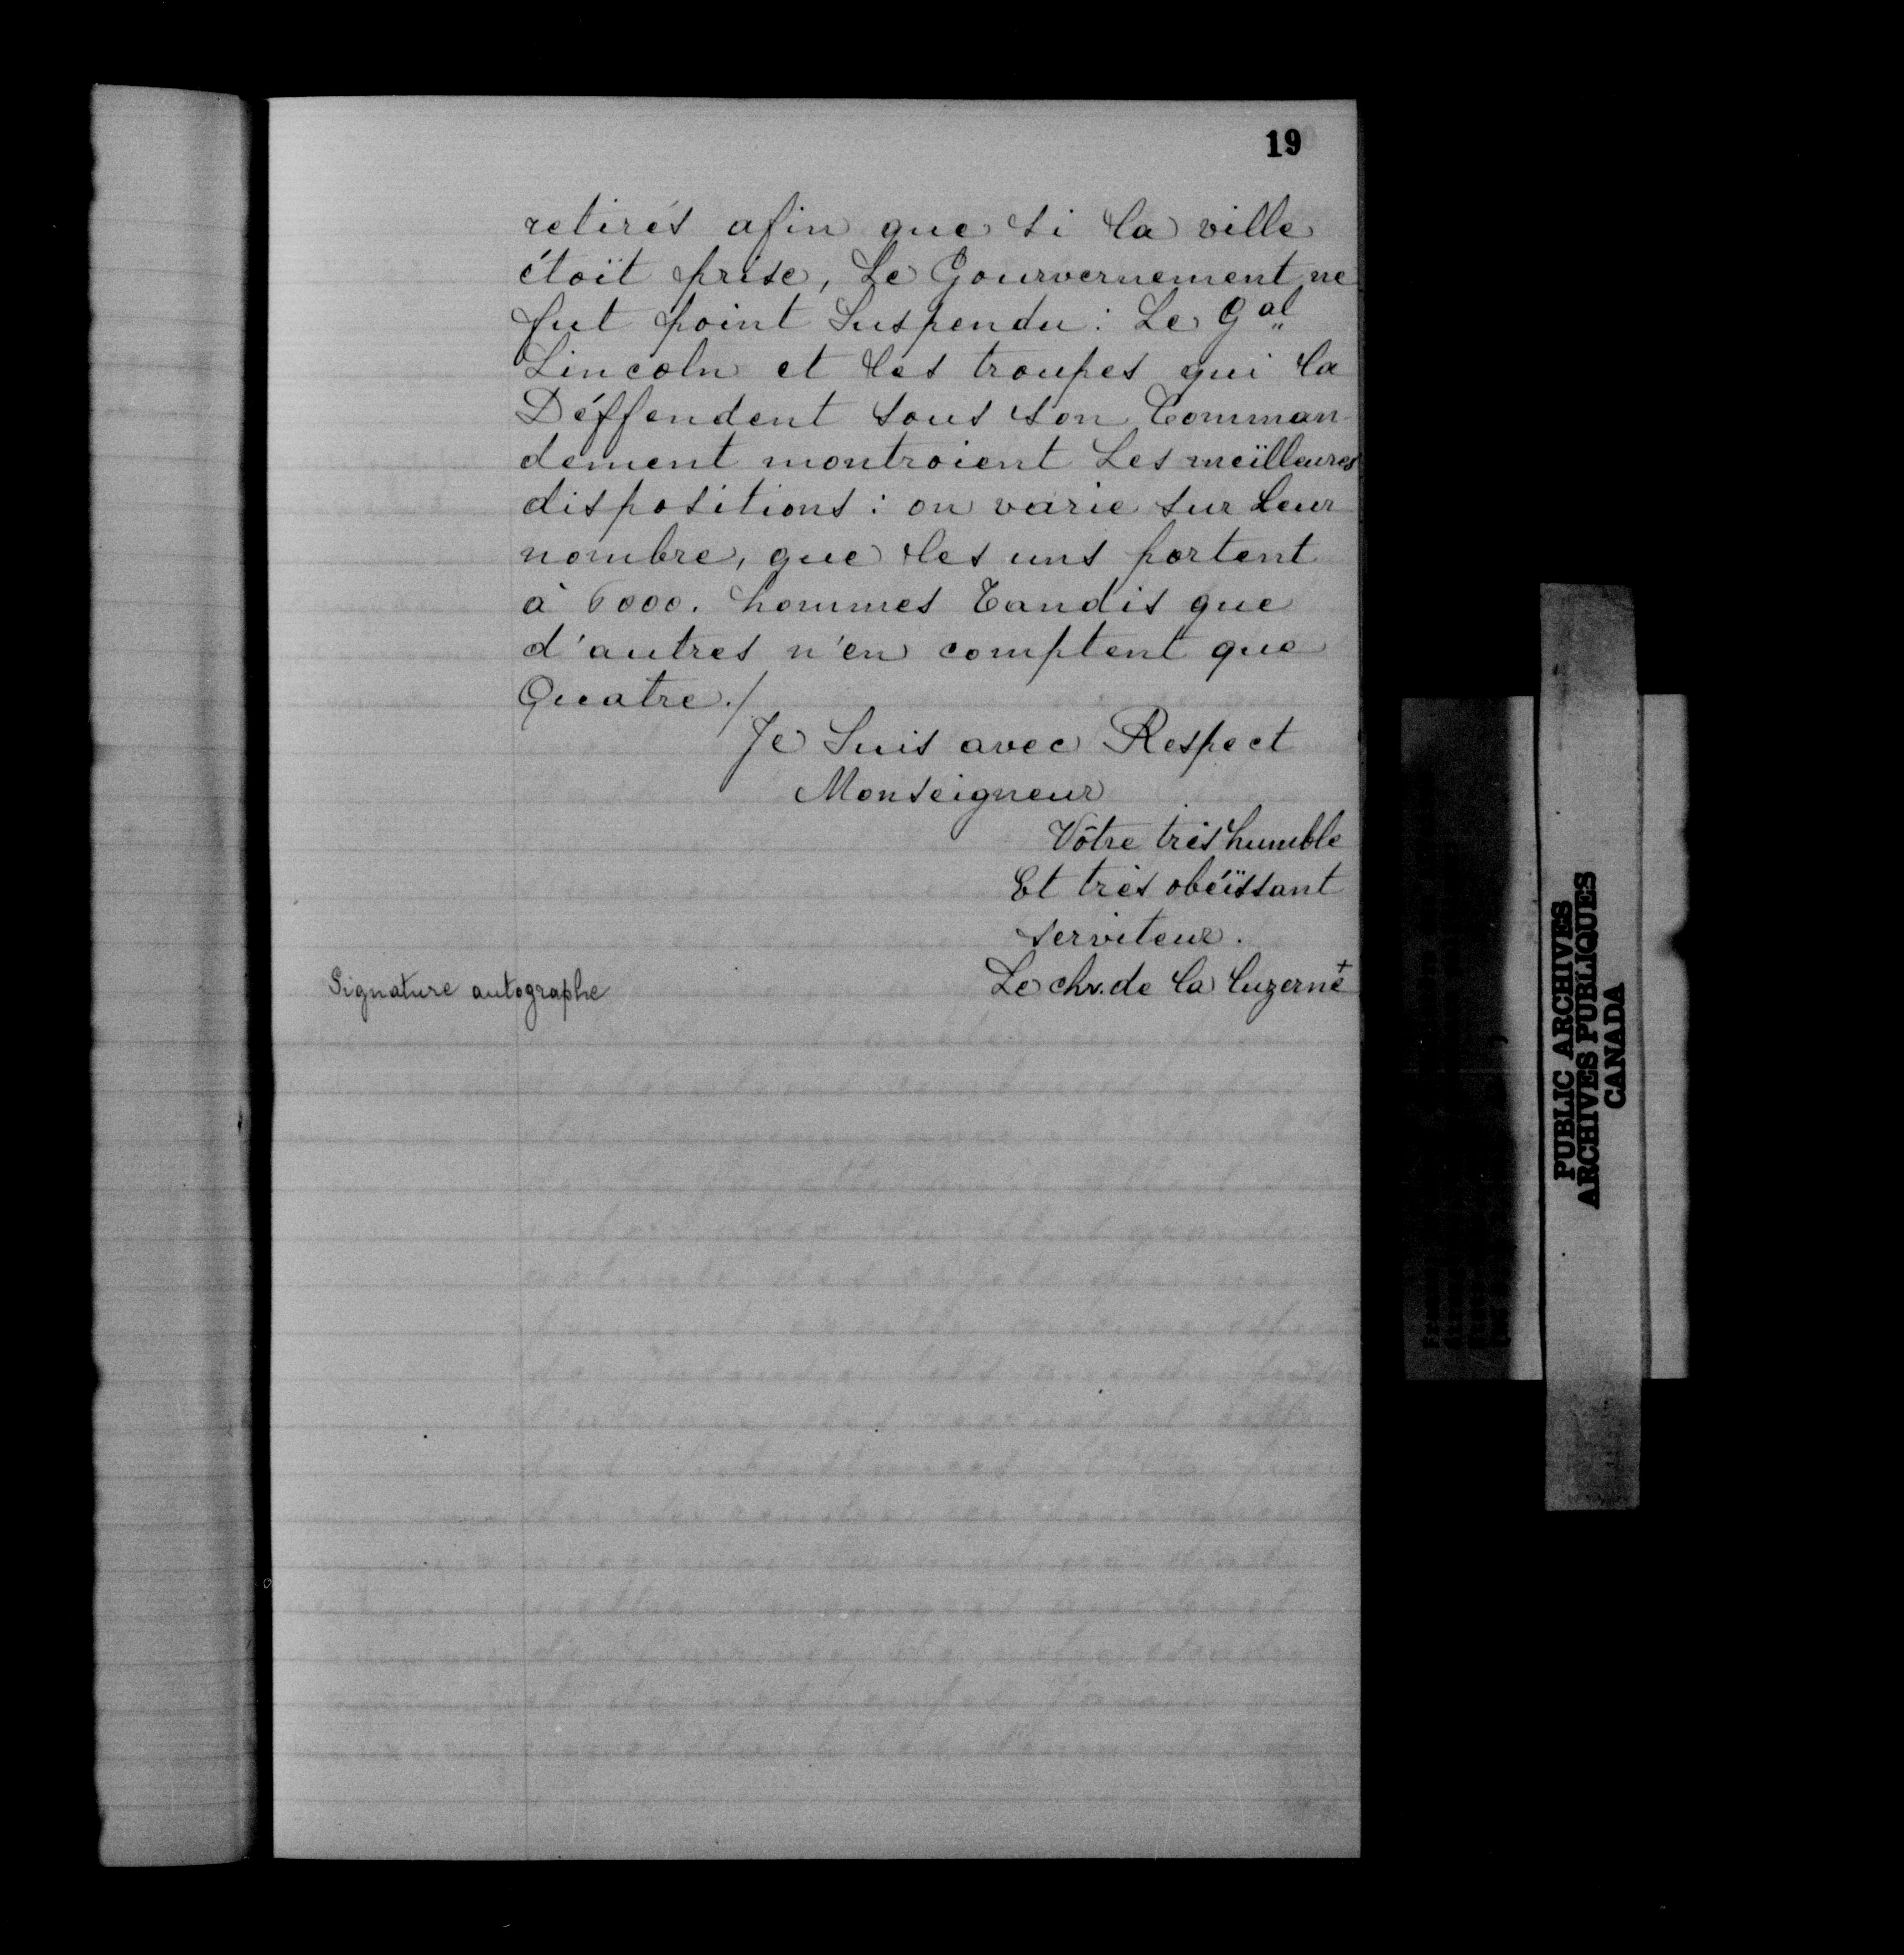 19
retirés afin que si la ville
étoït prise, Le Gourvernement ne
fut point Suspendu : Le Gal
Lincoln et les troupes qui la
Déffendent sous son Comman-
dement montroient Les meïlleures
dispositions : on varie sur Leur
nombre, que les uns portent
à 6000. hommes Tandis que
d'autres n'en comptent que
Quatre./
Je Suis avec Respect
Monseigneur
Vôtre très humble
Et très obéïssant
serviteur.
Signature autographe
Le chv. de la luzerne +
PUBLIC ARCHIVES
ARCHIVES PUBLIQUES
CANADA